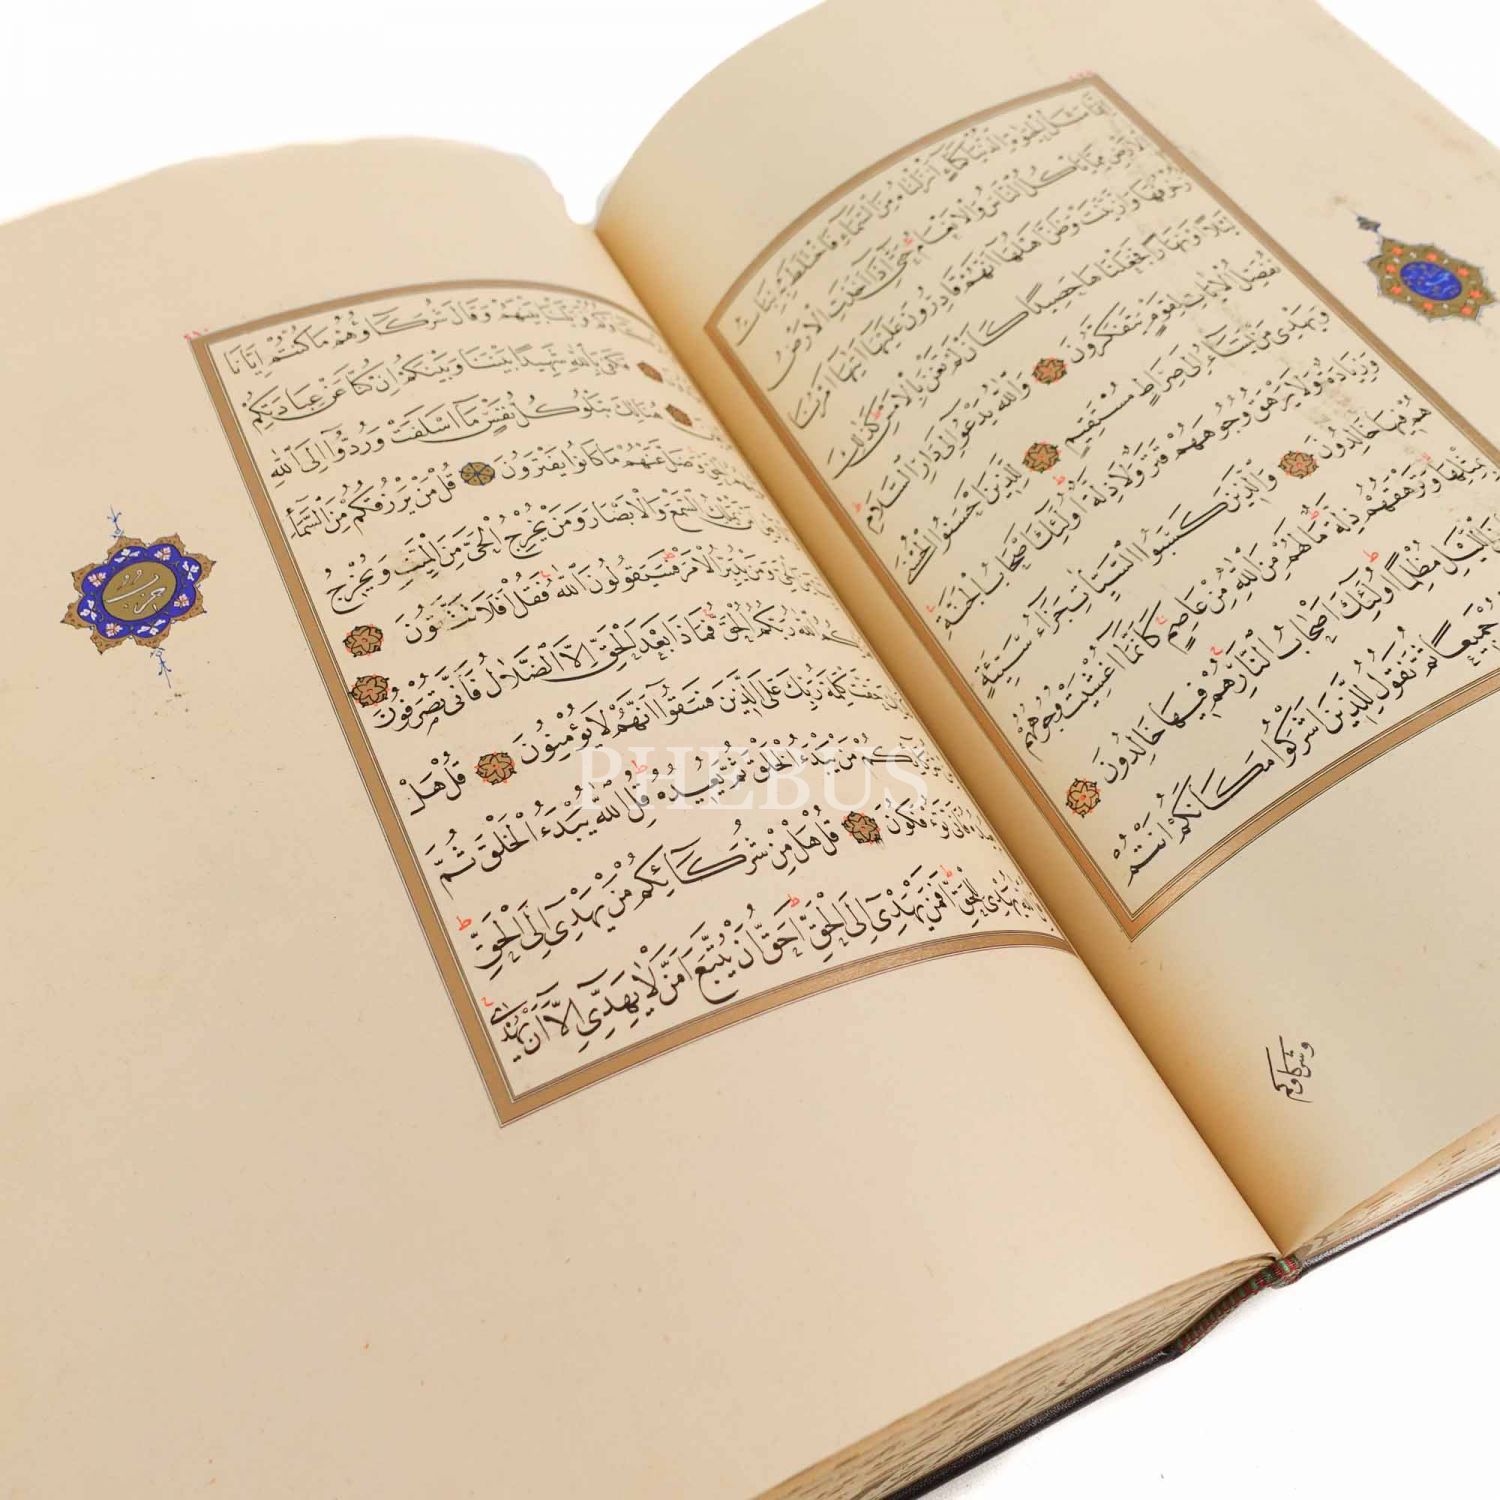 اِنَّمَا مَثَلُ الْحَيٰوةِ الدُّنْيَا كَمَآءٍ اَنْزَلْنَاهُ مِنَ السَّمَآءِ فَاخْتَلَطَ بِهِ نَبَاتُ
الْاَرْضِ مِمَّا يَاْكُلُ النَّاسُ وَالْاَنْعَامُ حَتّٰى اِذَا اَخَذَتِ الْاَرْضُ
زُخْرُفَهَا وَازَّيَّنَتْ وَظَنَّ اَهْلُهَا اَنَّهُمْ قَادِرُونَ عَلَيْهَا اَتٰيهَا اَمْرُنَا
لَيْلًا اَوْ نَهَارًا فَجَعَلْنَاهَا حَصِيدًا كَاَنْ لَمْ تَغْنَ بِالْاَمْسِ كَذٰلِكَ
نُفَصِّلُ الْاٰيَاتِ لِقَوْمٍ يَتَفَكَّرُونَ وَاللّٰهُ يَدْعُوا اِلٰى دَارِ السَّلَامِ
وَيَهْدِى مَنْ يَشَآءُ اِلٰى صِرَاطٍ مُسْتَقِيمٍ لِلَّذِينَ اَحْسَنُوا الْحُسْنٰى
وَزِيَادَةٌ وَلَا يَرْهَقُ وُجُوهَهُمْ قَتَرٌ وَلَا ذِلَّةٌ اُولٰٓئِكَ اَصْحَابُ الْجَنَّةِ
هُمْ فِيهَا خَالِدُونَ وَالَّذِينَ كَسَبُوا السَّيِّـَٔاتِ جَزَآءُ سَيِّئَةٍ
بِمِثْلِهَا وَتَرْهَقُهُمْ ذِلَّةٌ مَا لَهُمْ مِنَ اللّٰهِ مِنْ عَاصِمٍ كَاَنَّمَآ اُغْشِيَتْ وُجُوهُهُمْ
مِنَ الَّيْلِ مُظْلِمًا اُولٰٓئِكَ اَصْحَابُ النَّارِ هُمْ فِيهَا خَالِدُونَ
جَمِيعًا ثُمَّ نَقُولُ لِلَّذِينَ اَشْرَكُوا مَكَانَكُمْ اَنْتُمْ
وشركاؤكم
بَيْنَهُمْ وَقَالَ شُرَكَآؤُهُمْ مَا كُنْتُمْ اِيَّانَا
فَكَفٰى بِاللّٰهِ شَهِيدًا بَيْنَنَا وَبَيْنَكُمْ اِنْ كُنَّا عَنْ عِبَادَتِكُمْ
هُنَالِكَ تَبْلُوا كُلُّ نَفْسٍ مَآ اَسْلَفَتْ وَرُدُّوٓا اِلَى اللّٰهِ
وَضَلَّ عَنْهُمْ مَا كَانُوا يَفْتَرُونَ قُلْ مَنْ يَرْزُقُكُمْ مِنَ السَّمَآءِ
يَمْلِكُ السَّمْعَ وَالْاَبْصَارَ وَمَنْ يُخْرِجُ الْحَىَّ مِنَ الْمَيِّتِ وَيُخْرِجُ
وَمَنْ يُدَبِّرُ الْاَمْرَ فَسَيَقُولُونَ اللّٰهُ فَقُلْ اَفَلَا تَتَّقُونَ
اللّٰهُ رَبُّكُمُ الْحَقُّ فَمَاذَا بَعْدَ الْحَقِّ اِلَّا الضَّلَالُ فَاَنّٰى تُصْرَفُونَ
حَقَّتْ كَلِمَةُ رَبِّكَ عَلَى الَّذِينَ فَسَقُوٓا اَنَّهُمْ لَا يُؤْمِنُونَ قُلْ هَلْ
مَنْ يَبْدَؤُا الْخَلْقَ ثُمَّ يُعِيدُهُ قُلِ اللّٰهُ يَبْدَؤُا الْخَلْقَ ثُمَّ
فَاَنّٰى تُؤْفَكُونَ قُلْ هَلْ مِنْ شُرَكَآئِكُمْ مَنْ يَهْدِىٓ اِلَى الْحَقِّ
يَهْدِى لِلْحَقِّ اَفَمَنْ يَهْدِىٓ اِلَى الْحَقِّ اَحَقُّ اَنْ يُتَّبَعَ اَمَّنْ لَا يَهِدِّىٓ اِلَّآ اَنْ يُهْدٰى
حزب
PHEBUS